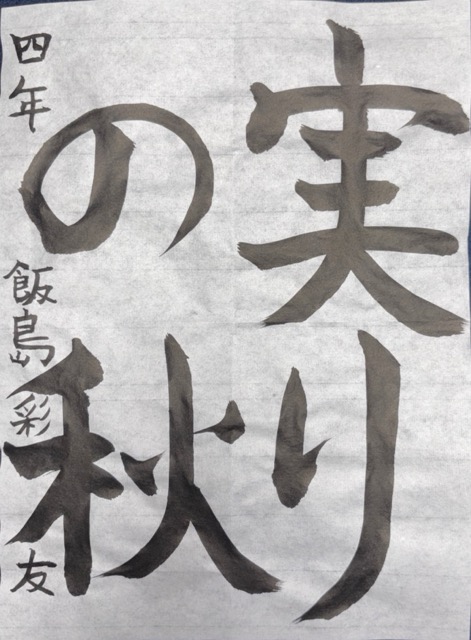 実り
の秋
四年 飯島彩友